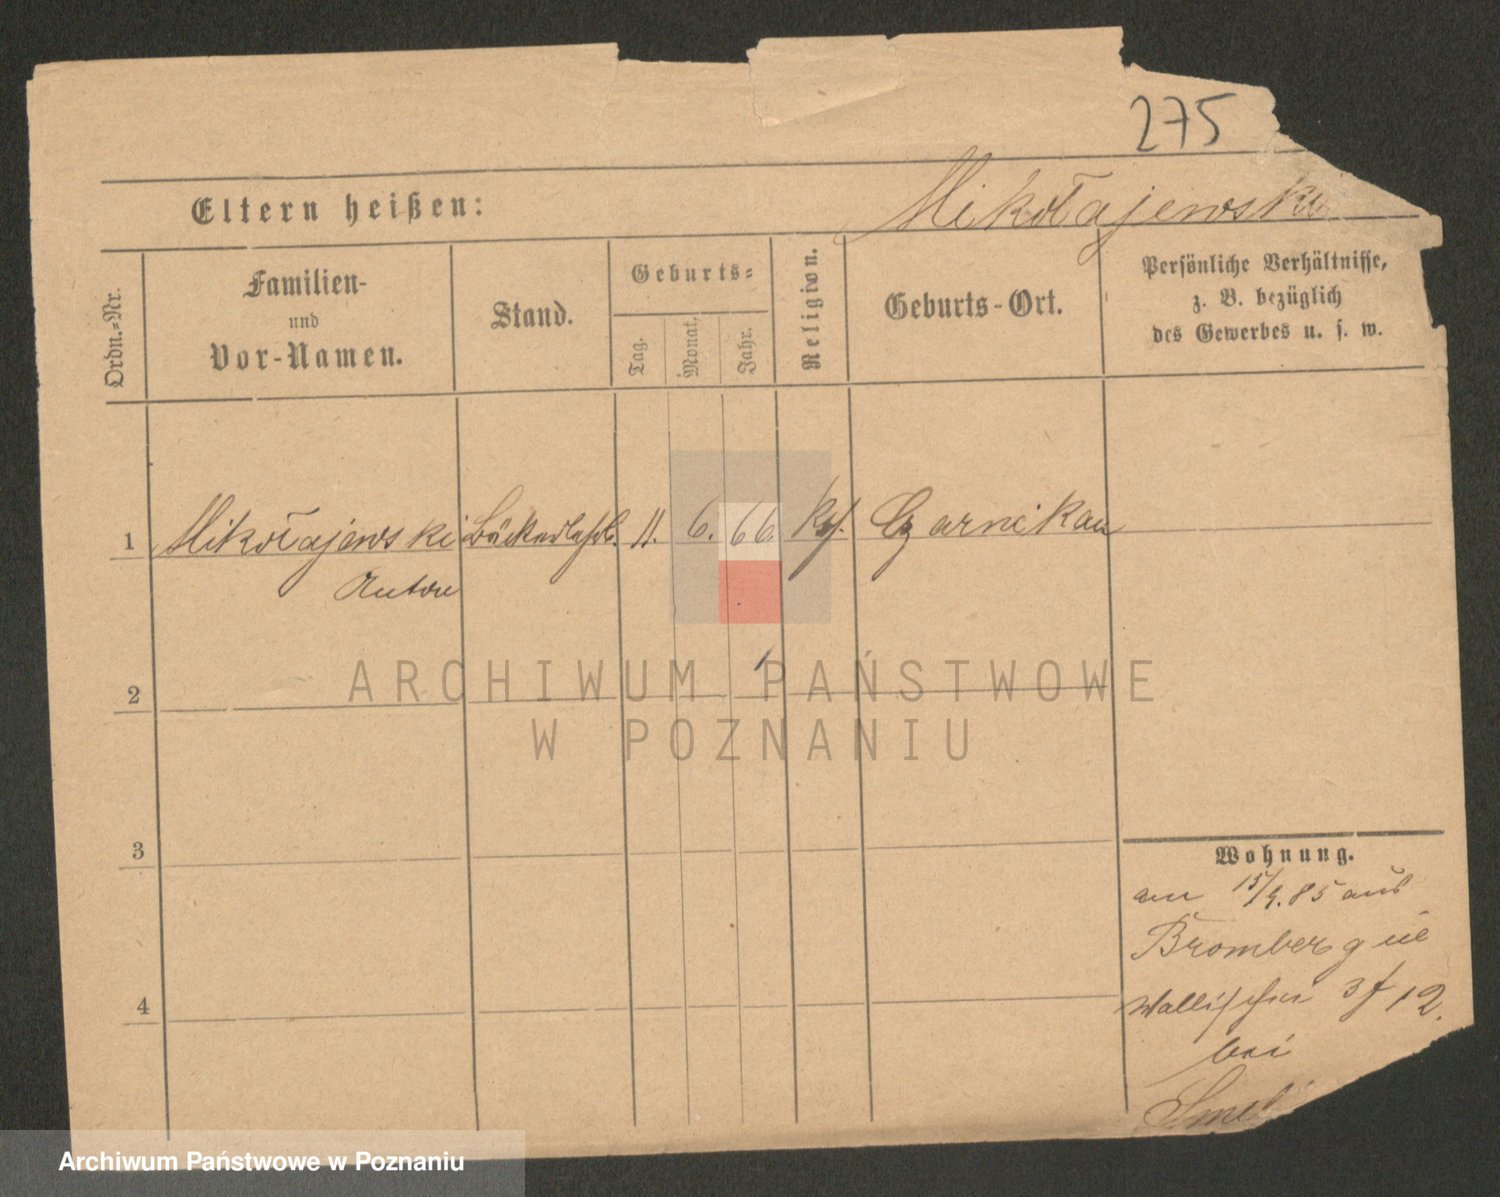 275
Eltern heißen:
Mikołajewski
Ordn.=Nr.
Familien-
und
Vor-Namen.
Stand.
Geburts=
Tag.
Monat.
Jahr.
Religion.
Geburts-Ort.
Persönliche Verhältnisse,
z. B. bezüglich
des Gewerbes u. s. w.
1 Mikołajewski Bäckerlehrl. 11. 6. 66. Czarnikau
Anton
2
3
4
Wohnung.
am 15/9.85 aus
Bromberg
Wallischei 12.
bei
ARCHIWUM PAŃSTWOWE
W POZNANIU
Archiwum Państwowe w Poznaniu